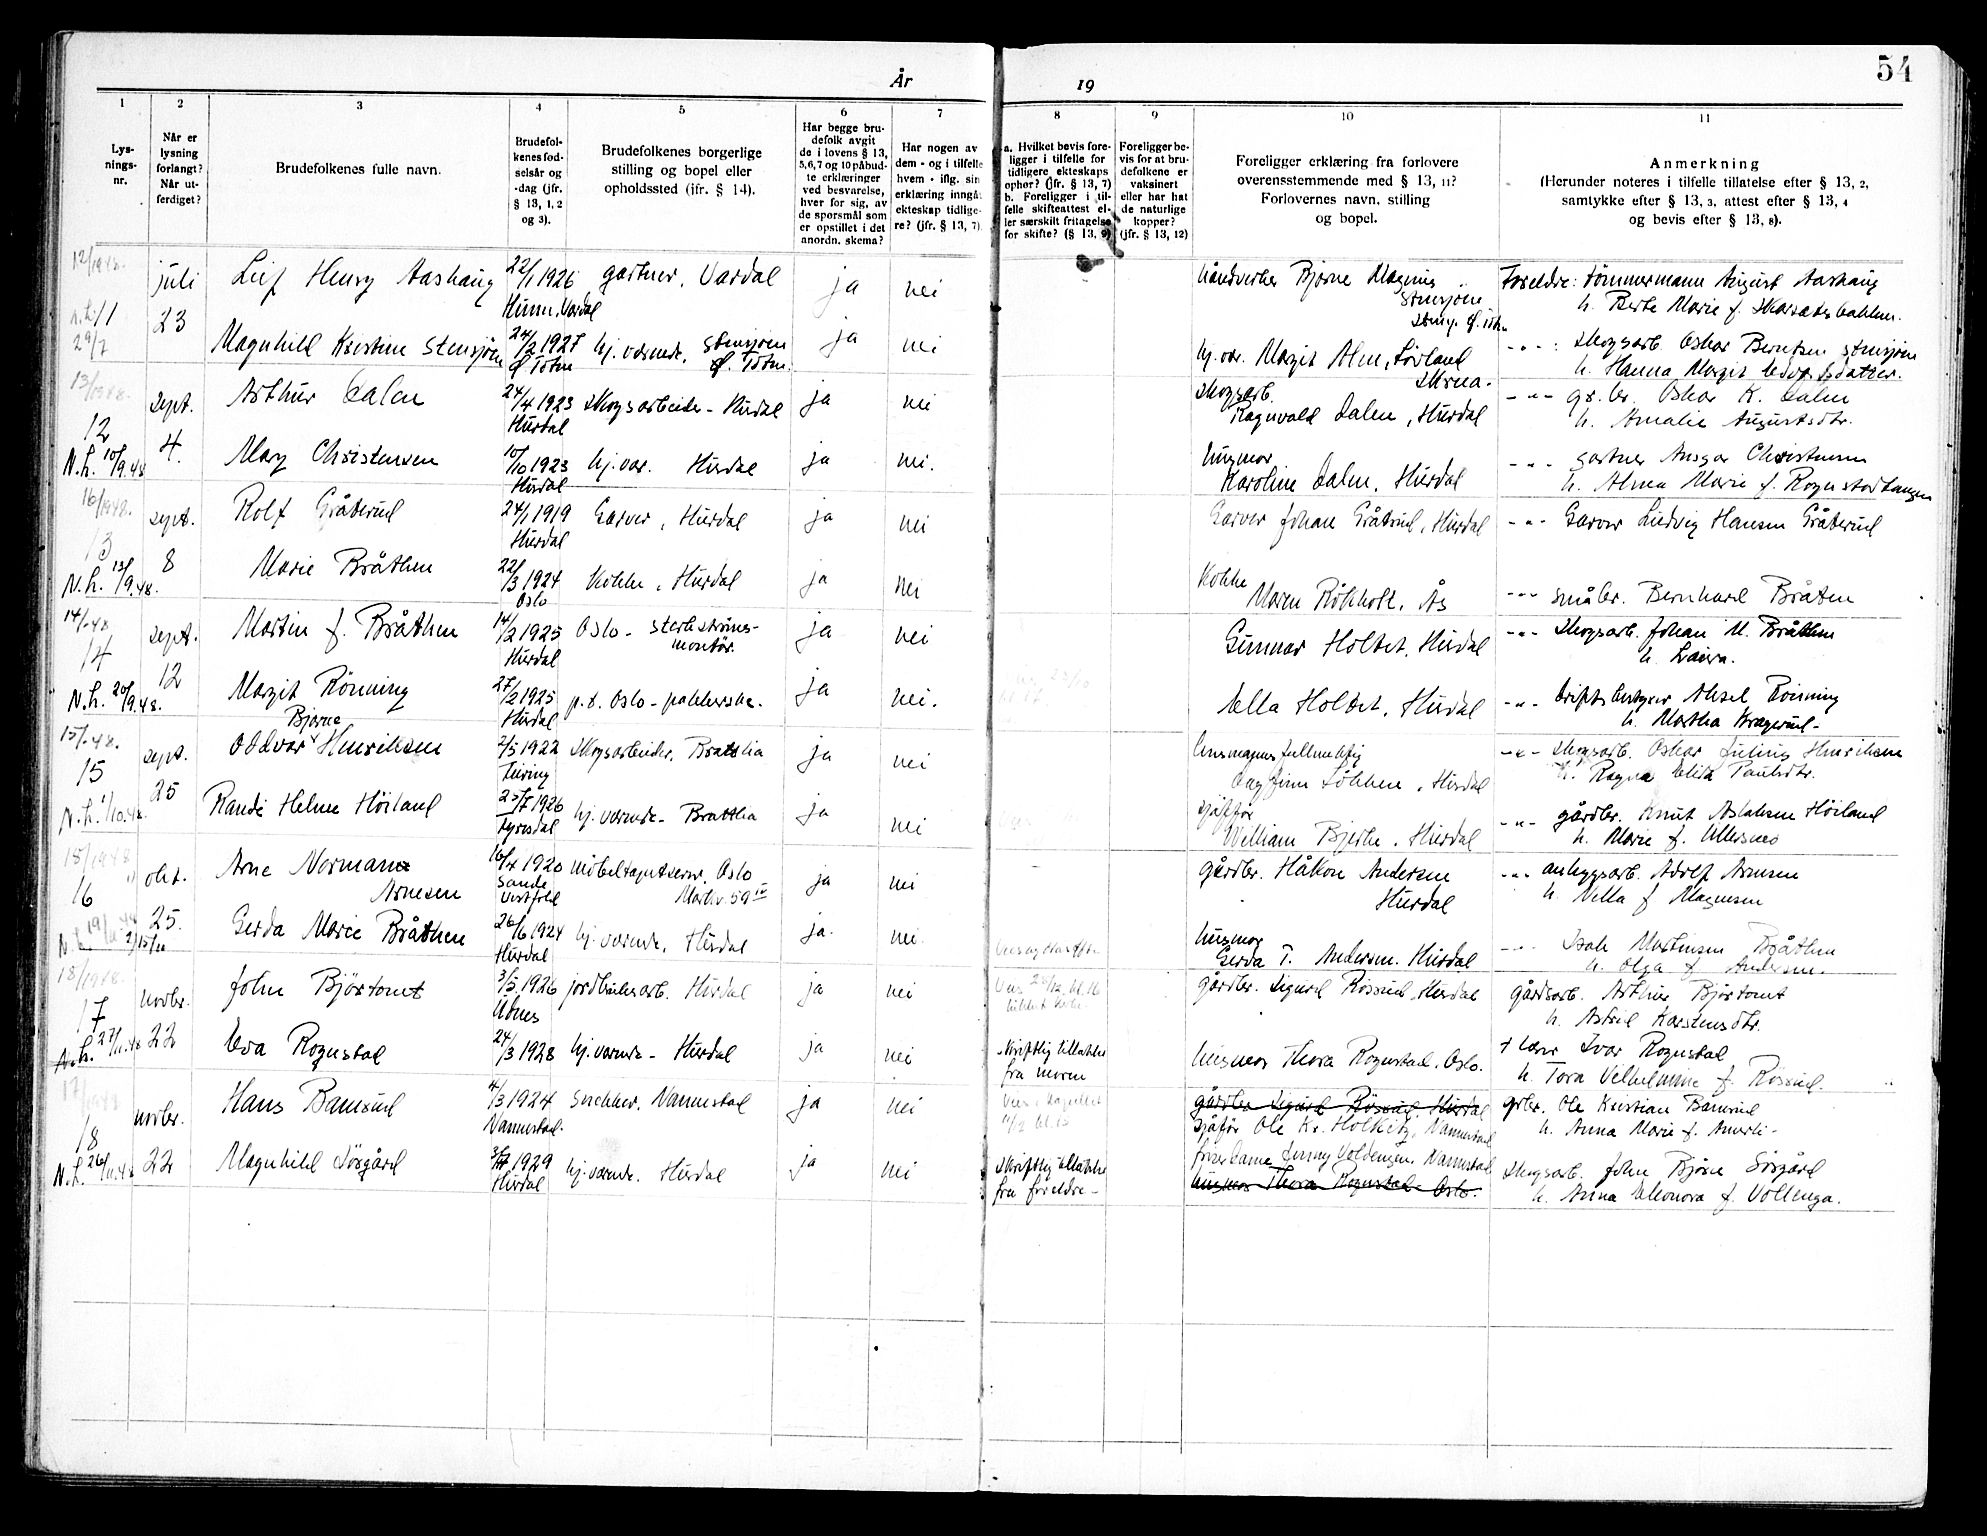 54
År
19
1
2
3
4
5
6
7
8
9
10
11
Lys-
nings-
nr.
Når er
lysning
forlangt?
Når ut-
ferdiget?
Brudefolkenes fulle navn.
Brudefol-
kenes fød-
selsår og
-dag (jfr.
§ 13, 1, 2
og 3).
Brudefolkenes borgerlige
stilling og bopel eller
opholdssted (jfr. § 14).
Har begge bru-
defolk avgit
de i lovens § 13,
5,6,7 og 10 påbud-
te erklæringer
ved besvarelse,
hver for sig, av
de spørsmål som
er opstillet i det
anordn. skema?
Har nogen av
dem - og i tilfelle
hvem - iflg. sin
erklæring inngå
ekteskap tidlige-
re? (jfr. § 13, 7)
a. Hvilket bevis fore-
ligger i tilfelle for
tidligere ekteskaps
ophør? (jfr. § 13, 7)
b. Foreligger i til-
felle skifteattest el-
ler særskilt fritagelse
for skifte? (§ 13, 9)
Foreligger be-
vis for at bru-
defolkene er
vaksinert
eller har hat
de naturlige
kopper?
(jfr. § 13, 12)
Foreligger erklæring fra forlovere
overensstemmende med § 13, 11?
Forlovernes navn, stilling
og bopel.
Anmerkning
(Herunder noteres i tilfelle tillatelse efter § 13, 2,
samtykke efter § 13, 3, attest efter § 13, 4
og bevis efter § 13, 8).
12/1948.
11
29/7
juli
23
Leif Henry Aashaug
22/1 1926
Hunn, Vardal
gartner, Vardal
ja
nei
håndverker Bjørne Magnus
Stensjøen
Foreldre: tømmermann August Aashaug
h. Berte Marie f.
Magnhild Kristine Stensjøen
24/2 1927
Ø Toten
hj. værende, Stensjøen
Ø. Toten.
ja
nei
hj. vær. Margit Alm, Løvland
Skreia.
- " - : Skogsarb. Oskar Berntsen Stensjøen
h. Hanna Margit
13/1948.
12
N.h. 10/9.48
sept.
4.
Arthur Dalen
24/4 1923
Hurdal
Skogsarbeider - Hurdal
ja
nei
Skogsarb.
Ragnvald Dalen, Hurdal
- " - gr.br. Oskar K. Dalen
h. Amalie Augustsdtr.
Mary Christensen
10/10 1923
Hurdal
hj. vær. Hurdal
ja
nei.
husmor
Karoline Dalen, Hurdal
- " - gartner Ansgar Christensen
h. Alma Marie f. Rognstadhaugen
16/1948.
13
N.h. 13/9.48.
sept.
8
Rolf Gråterud
24/1 1919
Hurdal
Garver, Hurdal
ja
nei
Garver Johan Gråterud, Hurdal
- " - Garver Ludvig Hansen Gråterud
Marie Bråthen
22/3 1924
Oslo
Kokke, Hurdal
ja
nei
Kokke
Maren Rökholt, Ås
- " - småbr. Bernhard Bråten
14/-48
14
N.h. 20/9.48.
sept.
12
Martin J. Bråthen
14/2 1925
Hurdal
Oslo - sterkstrøms-
montör.
ja
nei
Gunnar Holtet, Hurdal
- " - Skogsarb. Johan M. Bråthen
h. Laura.
Margit Rönning
27/2 1925
Hurdal
p.t. Oslo - pakkerske.
ja
nei.
Ella Holtet, Hurdal
- " - driftsbestyrer Aksel Rönning
h. Martha Kragerud -
15/-48.
15
N.h. 1/10.48.
sept.
25
Bjarne
Oddvar Henriksen
2/5 1922
Feiring
Skogsarbeider. Brattlia
ja
nei
Dagfinn Løkken, Hurdal
- " - Skogsarb. Oskar Julius Henriksen
h. Ragna Elida Paulsdtr.
Randi Helene Höiland
1926
Fyresdal
hj. værende - Brattlia
ja
nei
sjåfør
William Bjerke, Hurdal
- " - gårdbr. Knut Aslaksen Höiland
h. Marie f. Ullesnes
16
okt.
25.
Arne Normann
Arnesen
16/4 1920
Sande
Vestfold
möbeltapetserer, Oslo
59 IV
ja
nei
gårdbr. Håkon Andersen
Hurdal
- " - anleggsarb. Adolf Arnesen
h. Vella f Magnesen
Gerda Marie Bråthen
26/6 1924
Hurdal
hj. værende, Hurdal
ja.
nei.
husmor
Gerda T. Andersen. Hurdal
- " - Isak Martinsen Bråthen
h. Olga f Andersen.
18/1948.
17
N.h. 27/11.48
novbr.
22
John Bjørtomt
3/5 1926
Udnes
jordbruksarb. Hurdal
ja
nei
gårdbr. Sigurd Røssud, Hurdal
gårdsarb. Arthur Bjørtomt
h. Astrid Karstensdtr.
Eva Rognstad
24/3 1928
hj. værende - Hurdal
ja
nei
Skriftlig tillatelse
fra moren
husmor Thora Rognstad. Oslo.
+ lærer Ivar Rognstad
h. Tora Vilhelmine f. Røssud.
17/1948
18
N.h. 26/11.48
novbr.
22
Hans Bamrud
4/3 1924
Nannestad.
Snekker, Nannestad
ja
nei
gårdbr Sigurd Røssud. Hurdal
sjåför Ole Kr. Holkeby, Nannestad
grbr. Ole Kristian Bamrud
h. Anna Marie f.
Magnhild Sörgård
1929
Hurdal
hj. værende. Hurdal
ja
nei
Skriftlig tillatelse
fra foreldre -
friserdame Jenny Voldengen, Nannestad
husmor Thora Rognstad - Oslo.
Skogsarb. John Bjöne Sörgård
h. Anna Eleonora f. Vollenga.